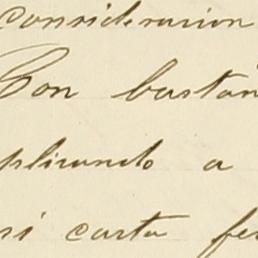 consideracion
Con bastan
plicando a
si carta fe